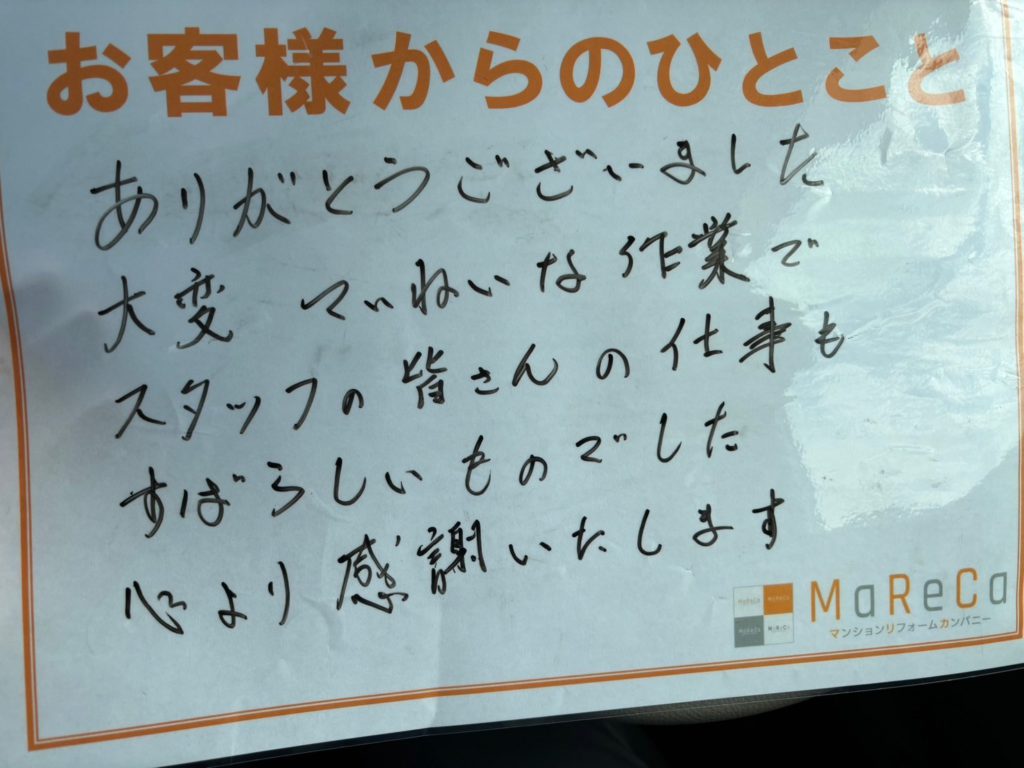 お客様からのひとこと
ありがとうございました
大変 ていねいな作業で
スタッフの皆さんの仕事も
すばらしいものでした
心より感謝いたします
MaReCa
マンションリフォームカンパニー